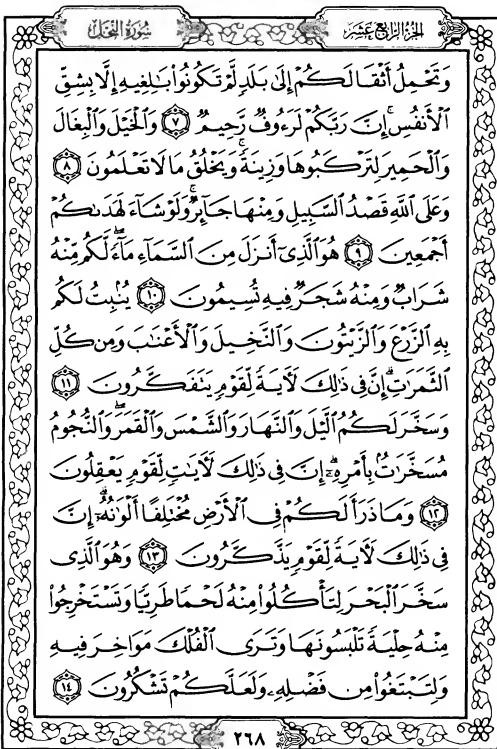 الجزء الرابع عشر
سورة النحل
وَتَحْمِلُ أَثْقَالَكُمْ إِلَىٰ بَلَدٍ لَّمْ تَكُونُوا۟ بَٰلِغِيهِ إِلَّا بِشِقِّ
ٱلْأَنفُسِ ۚ إِنَّ رَبَّكُمْ لَرَءُوفٌ رَّحِيمٌ ۝٧ وَٱلْخَيْلَ وَٱلْبِغَالَ
وَٱلْحَمِيرَ لِتَرْكَبُوهَا وَزِينَةً ۚ وَيَخْلُقُ مَا لَا تَعْلَمُونَ ۝٨
وَعَلَى ٱللَّهِ قَصْدُ ٱلسَّبِيلِ وَمِنْهَا جَآئِرٌ ۚ وَلَوْ شَآءَ لَهَدَىٰكُمْ
أَجْمَعِينَ ۝٩ هُوَ ٱلَّذِىٓ أَنزَلَ مِنَ ٱلسَّمَآءِ مَآءً ۖ لَّكُم مِّنْهُ
شَرَابٌ وَمِنْهُ شَجَرٌ فِيهِ تُسِيمُونَ ۝١٠ يُنۢبِتُ لَكُم
بِهِ ٱلزَّرْعَ وَٱلزَّيْتُونَ وَٱلنَّخِيلَ وَٱلْأَعْنَٰبَ وَمِن كُلِّ
ٱلثَّمَرَٰتِ ۗ إِنَّ فِى ذَٰلِكَ لَءَايَةً لِّقَوْمٍ يَتَفَكَّرُونَ ۝١١
وَسَخَّرَ لَكُمُ ٱلَّيْلَ وَٱلنَّهَارَ وَٱلشَّمْسَ وَٱلْقَمَرَ ۖ وَٱلنُّجُومُ
مُسَخَّرَٰتٌۢ بِأَمْرِهِۦٓ ۗ إِنَّ فِى ذَٰلِكَ لَءَايَٰتٍ لِّقَوْمٍ يَعْقِلُونَ
۝١٢ وَمَا ذَرَأَ لَكُمْ فِى ٱلْأَرْضِ مُخْتَلِفًا أَلْوَٰنُهُۥٓ ۗ إِنَّ
فِى ذَٰلِكَ لَءَايَةً لِّقَوْمٍ يَذَّكَّرُونَ ۝١٣ وَهُوَ ٱلَّذِى
سَخَّرَ ٱلْبَحْرَ لِتَأْكُلُوا۟ مِنْهُ لَحْمًا طَرِيًّا وَتَسْتَخْرِجُوا۟
مِنْهُ حِلْيَةً تَلْبَسُونَهَا وَتَرَى ٱلْفُلْكَ مَوَاخِرَ فِيهِ
وَلِتَبْتَغُوا۟ مِن فَضْلِهِۦ وَلَعَلَّكُمْ تَشْكُرُونَ ۝١٤
٢٦٨